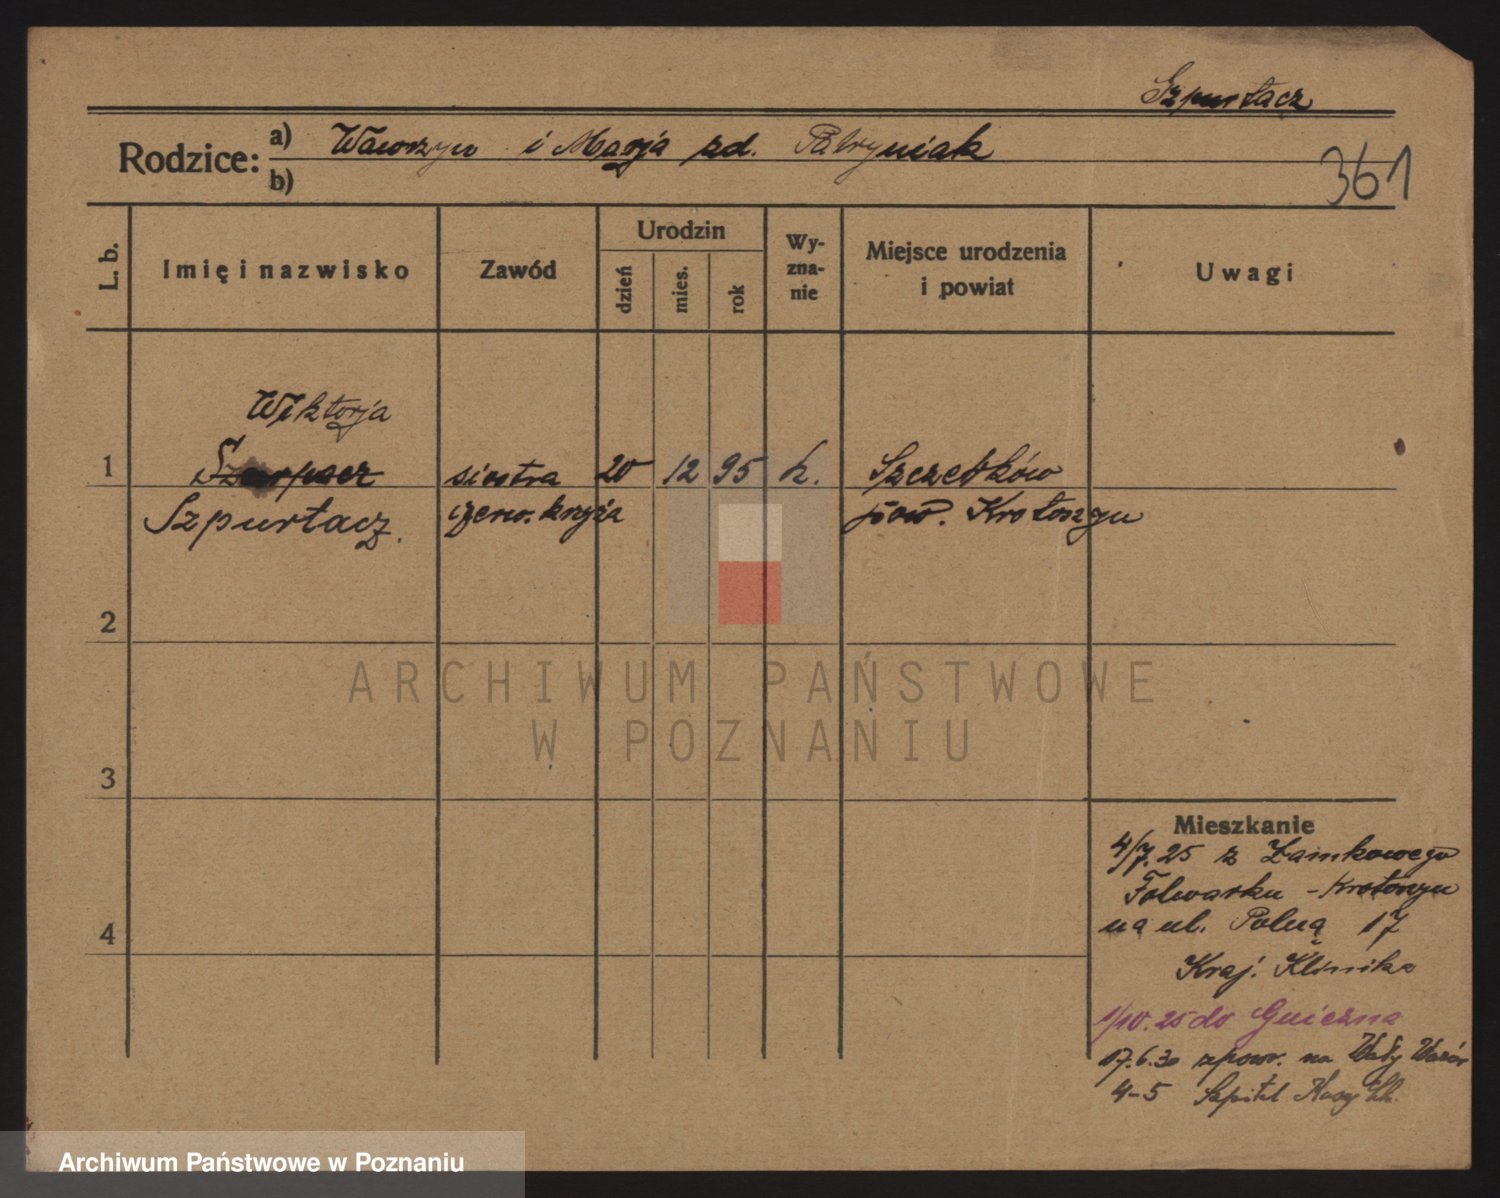 Szpurtacz
Rodzice:
a) Wawrzyn i Marja zd. Patryniak
b)
361
L. b.
Imię i nazwisko
Zawód
Urodzin
dzień
mies.
rok
Wy-
zna-
nie
Miejsce urodzenia
i powiat
Uwagi
Wiktorja
1
siostra 20 12 95 k. Szczerków
Szpurtacz. czerw. krzyża pow. Krotoszyn
2
3
4
Mieszkanie
4/7.25 z Zamkowego
Folwarku - Krotoszyn
na ul. Polną 17
Kraj. Klinika
1/10.25 do Gniezna
17.6.30 zpow. na Wały Wazów
4-5 Szpital Kasy Ch.
ARCHIWUM PAŃSTWOWE
W POZNANIU
Archiwum Państwowe w Poznaniu